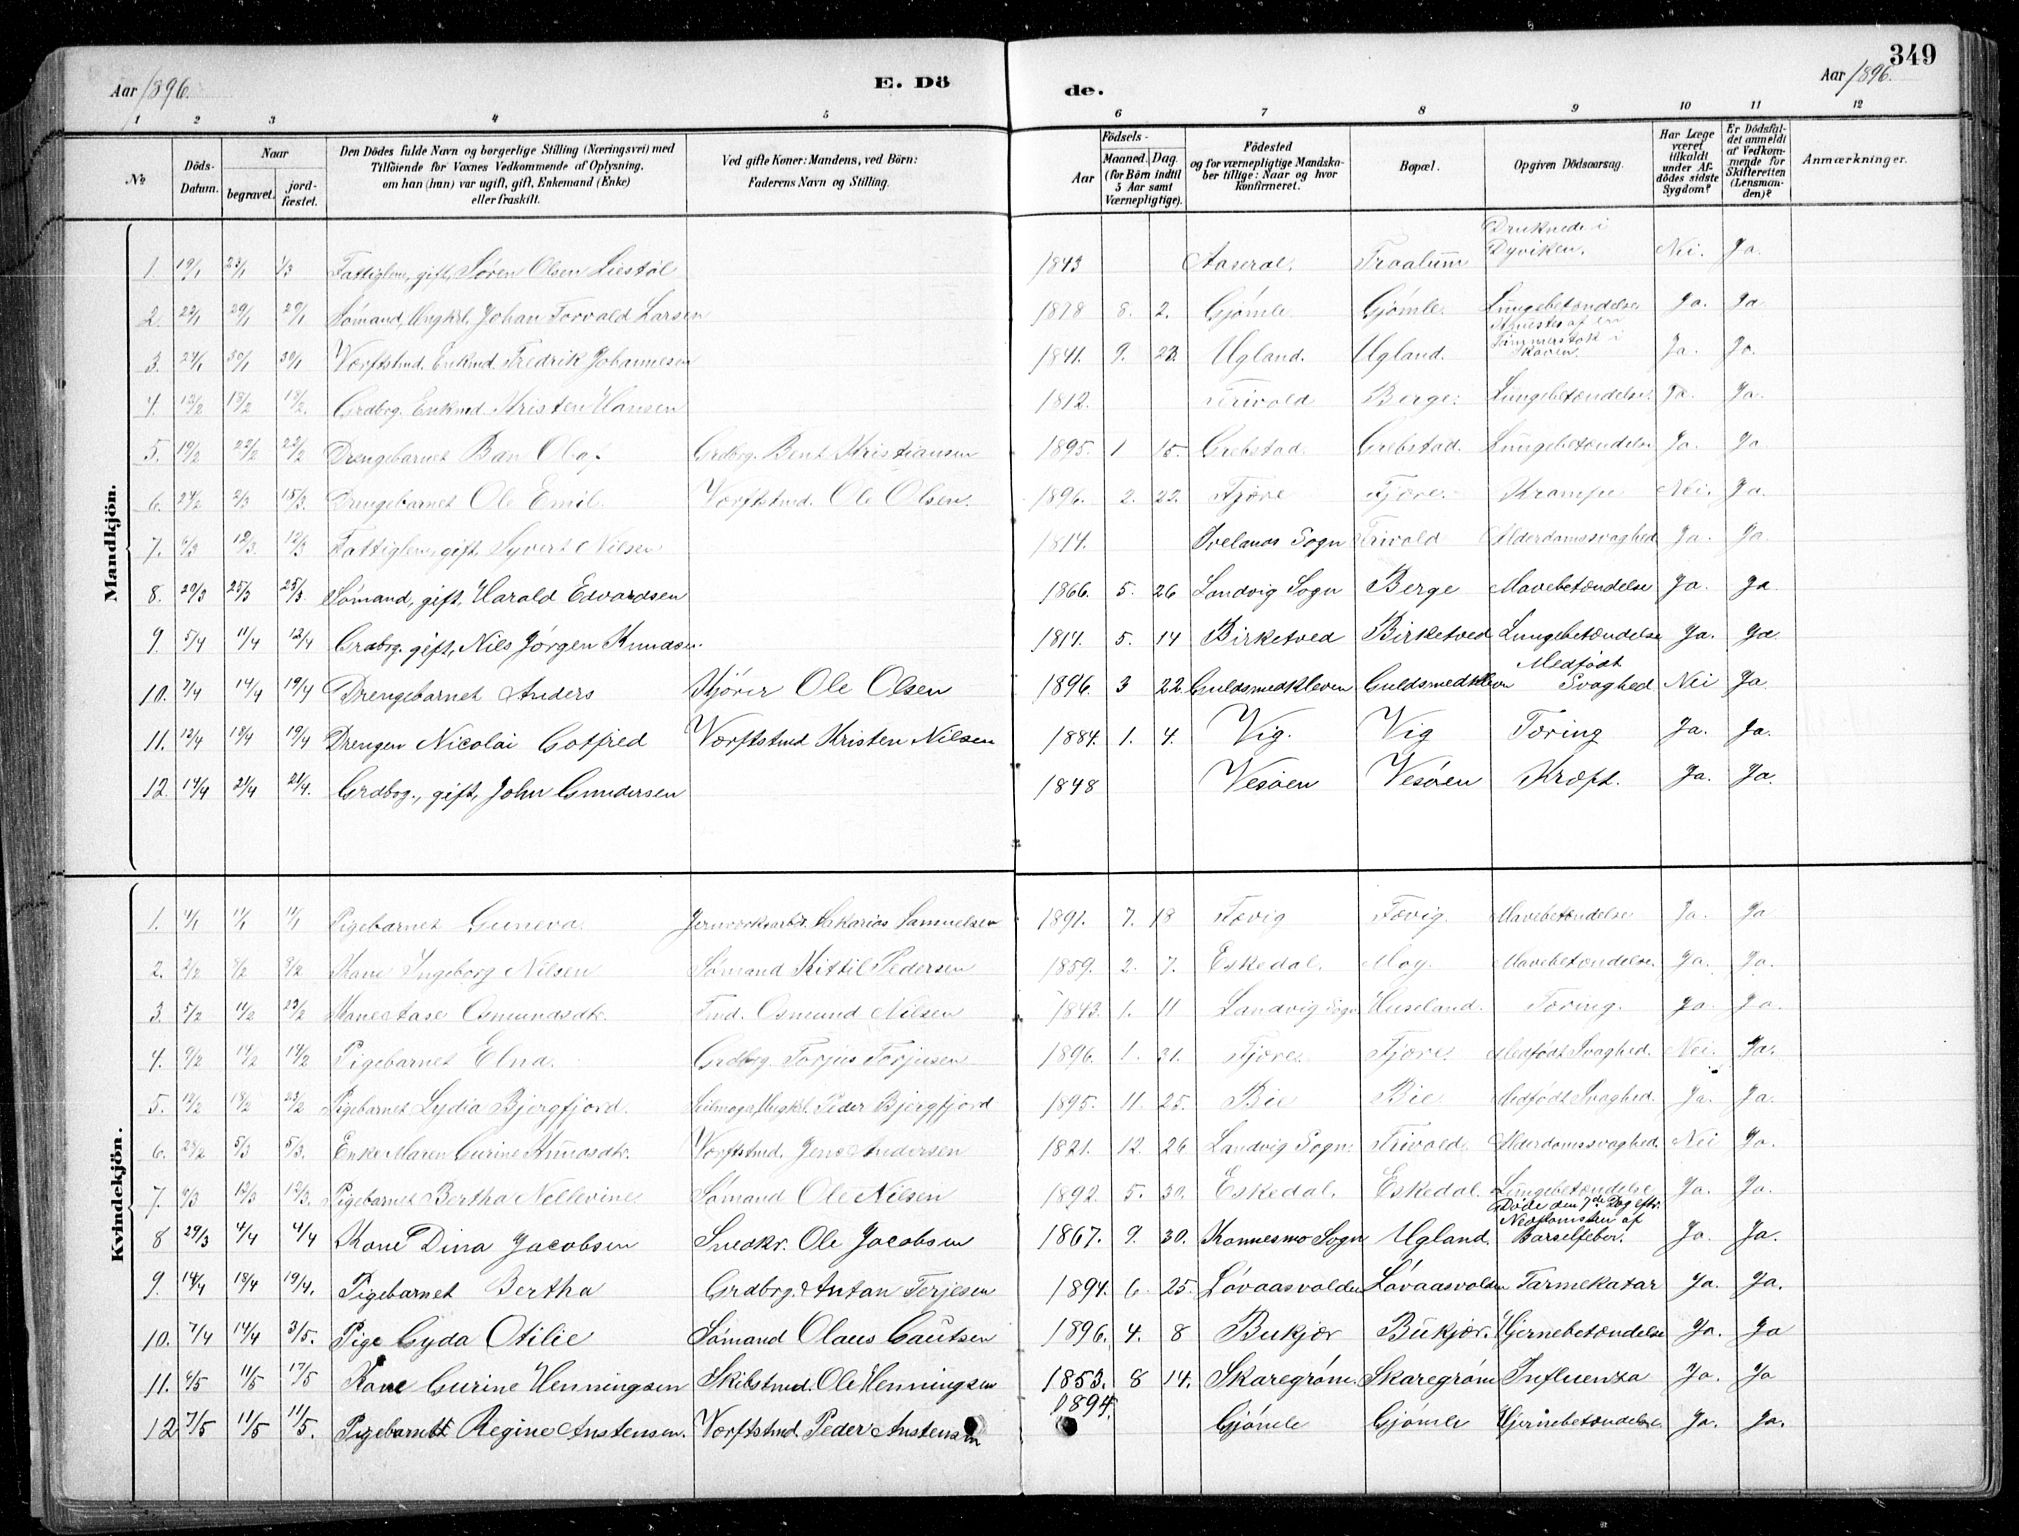 349
Aar 1896.
E. Dö de.
Aar 1896.
1 2 3 4 5 6 7 8 9 10 11 12
No
Döds-Datum.
Naar
begravet.
jord-fæstet.
Den Dödes fulde Navn og borgerlige Stilling (Næringsvei) med
Tilföiende for Voxnes Vedkommende af Oplysning,
om han (hun) var ugift, gift, Enkemand (Enke)
eller fraskilt.
Ved gifte Koner: Mandens, ved Börn:
Faderens Navn og Stilling.
Födsels-
Aar
Maaned. Dag.
(for Börn indtil
5 Aar samt
Værnepligtige).
Födested
og for værnepligtige Mandska-
ber tillige: Naar og hvor
konfirmeret.
Bopæl.
Opgiven Dödsaarsag.
Har Læge
været
tilkaldt
under Af-
dödes sidste
Sygdom?
Er Dödsfal-
det anmeldt
af Vedkom-
mende for
Skifteretten
(Lensman-
den)?
Anmærkninger.
Mandkjön.
1. 19/1 23/1 1/3 Fattiglem, gift, Søren Olsen Liestøl 1843 Aaseral. Traalum Druknede i Dyviken. Nei. Ja.
2. 22/1 29/1 29/1 Sømand, Ungkrl. Johan Torvald Larsen 1878 8. 2. Gjømle Gjømle. Lungebetændelse Ja. Ja
3. 24/1 30/1 30/1 Værftstmd. Enkmd. Fredrik Johannesen 1841. 9. 23. Ugland. Ugland. Tømmerstok i Skoven. Ja. Ja.
4. 12/2 18/2 18/2. Grdbrg. Enkmd. Kristen Hansen 1812. Trivold Berge. Lungebetændelse. Ja. Ja.
5. 19/2 22/2 22/2 Drengebarnet Ban Olaf Grdbrg. Bent Kristiansen 1895. 1 15. Grebstad. Grebstad. Lungebetændelse Ja. Ja
6. 24/2 2/3 15/3. Drengebarnet Ole Emil. Værftstmd. Ole Olsen. 1896. 2. 22. Fjære Fjære. Krampe Nei. Ja.
7. 6/3 12/3. 12/3 Fattiglem, gift, Syvert Nilsen 1814. Ivelands Sogn Trivold Alderdomssvaghed Ja. Ja.
8. 20/3 25/3 25/3. Sømand, gift, Harald Edvardsen 1866. 5. 26 Landvig Sogn Berge Mavebetændelse Ja. Ja.
9. 5/4 11/4 12/4 Grdbrg. gift, Nils Jørgen Knudsen. 1814. 5. 14 Birketved Birketved Lungebetændelse Ja. Ja
10. 7/4 14/4 19/4 Drengebarnet Anders Kjører Ole Olsen 1896. 3 22. Guldsmedkleven Guldsmedkleven Medfødt Svaghed Nei Ja.
11. 12/4 19/4 19/4 Drengen Nicolai Gotfred Værftstmd Kristen Nilsen 1884. 1. 4. Vig. Vig Tæring Ja. Ja.
12. 14/4 21/4 21/4. Grdbrg., gift, John Gundersen 1848 Vesøen Vesøen Kræft. Ja. Ja.
Kvindekjön.
1. 4/1 11/1 11/1 Pigebarnet Guneva. Jernværksarbr. Sakarias Samuelsen 1891. 7. 18 Fævig Fævig. Mavebetændelse Ja. Ja
2. 2/2 8/2 8/2 Kone Ingeborg Nilsen Sømand Kittil Pedersen 1859. 2. 7. Eskedal. Moy. Mavebetændelse. Ja. Ja.
3. 5/2 11/2 23/2 Kone Aase Osmundsdtr. Osmund Nilsen 1843. 1. 11 Landvig Sogn Huseland. Tæring. Ja. Ja.
4. 9/2 14/2 14/2 Pigebarnet Elna. Grdbrg. Torjus Torjusen 1896. 1. 31. Fjære. Fjære. Medfødt Svaghed. Nei. Ja.
5. 12/2 18/2 23/2 Pigebarnet Lydia Bjergfjord. Seilmager, Ungkrl. Peder Bjergfjord 1895. 11. 25. Bie Bie Medfødt Svaghed. Ja. Ja.
6. 25/2 5/3 5/3. Enke Maren Gurine Knudsdtr. Værftstmd. Jens Andersen 1821. 12. 26 Landvig Sogn. Trivold. Alderdomssvaghed. Nei Ja.
7. 6/3 12/3 12/3. Pigebarnet Bertha Nellevine Sømand Ole Nilsen 1892. 5. 30. Eskedal. Eskedal. Lungebetændelse Ja. Ja.
8 29/3 4/4 4/4 Kone Dina Jacobsen Snedkr. Ole Jacobsen 1867. 9. 30. Konnesmo Sogn Ugland. Døde den 7de Dag eftr. Nedkomsten af Barselfeber. Ja. Ja.
9. 14/4 18/4 19/4. Pigebarnet Bertha Grdbrg. Antan Terjesen 1894. 6. 25. Løvaasvolden Løvaasvolden Tarmekatar Ja. Ja.
10. 7/4 14/4 3/5. Pige Gyda Otilie Sømand Olaus Gautsen 1896. 4. 8 Bukjær Bukjær. Hjernebetændelse Ja. Ja
11. 6/5 11/5 17/5 Kone Gurine Henningsen Skibstmd. Ole Henningsen 1853. 8 14. Skaregrøm. Skaregrøm Influensa Ja. Ja
12 7/5 11/5 11/5. Pigebarnet Regine Anstensen. Værftstmd. Peder Anstensen 1894. Gjømle Gjømle Hjernebetændelse. Ja. Ja.